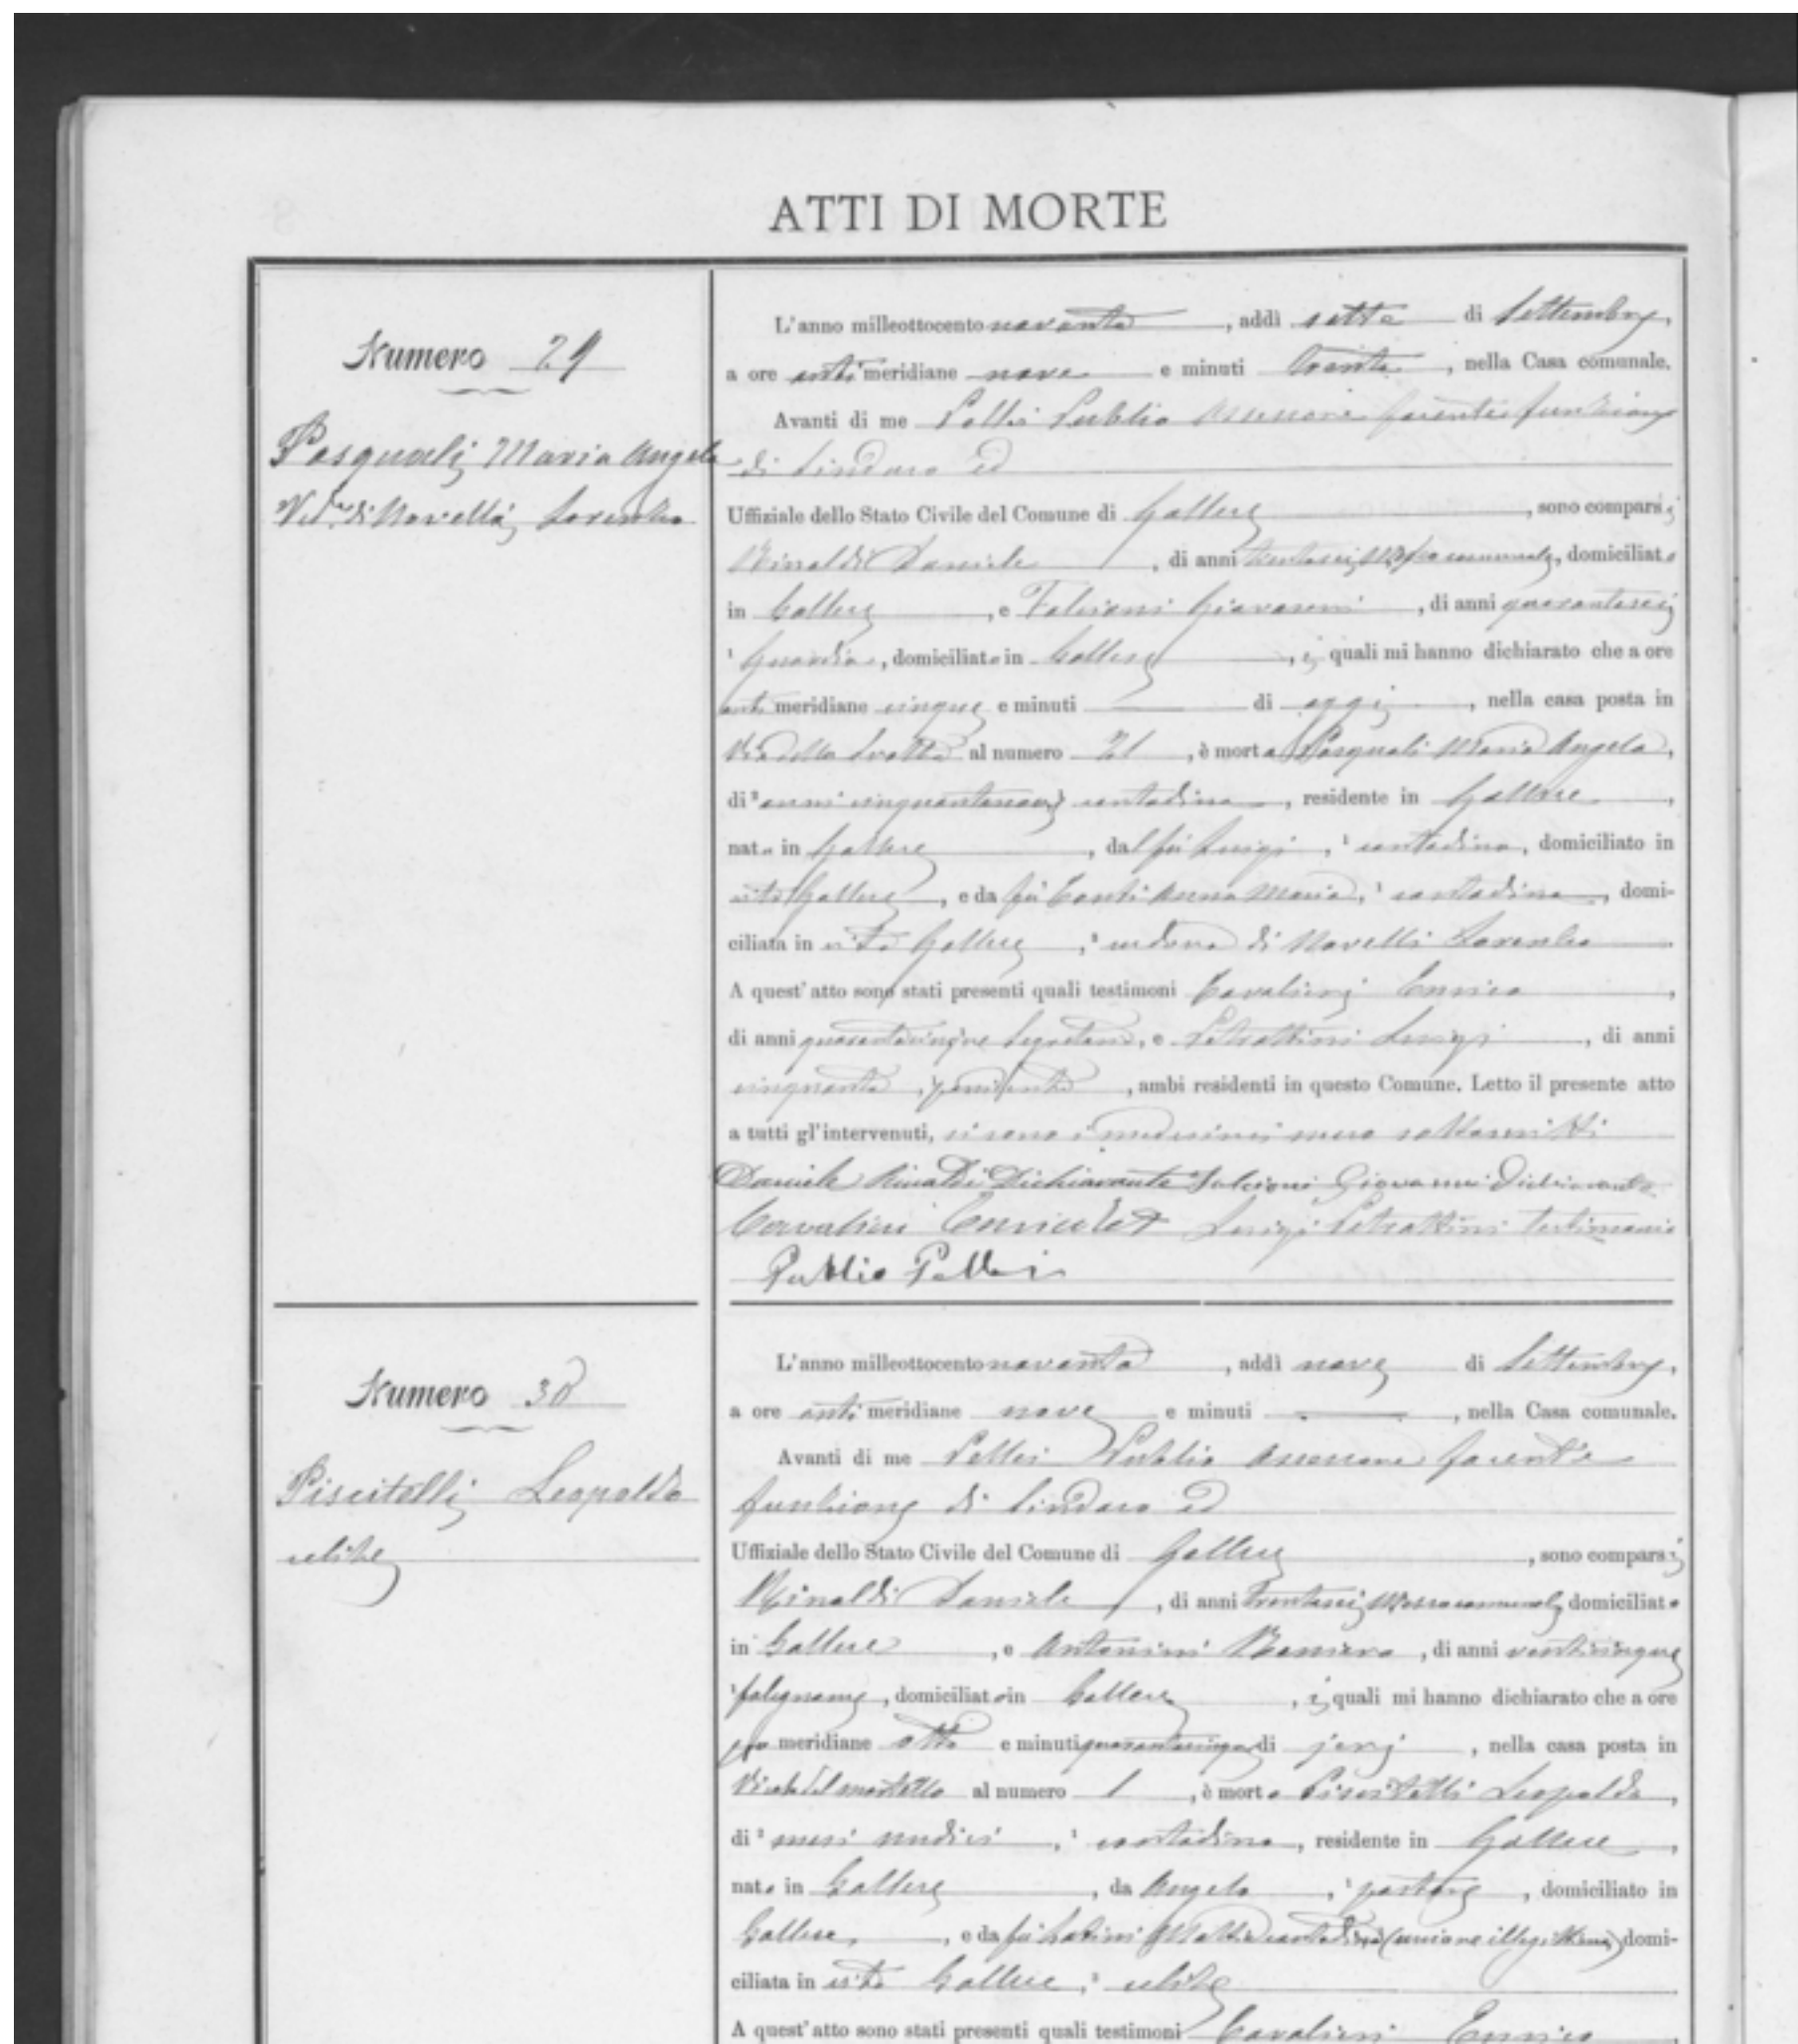 ATTI DI MORTE
Numero 29
Pasquali Maria Angela
Ved.va di Novelli Lorenzo
L'anno milleottocento novanta, addì sette di Settembre,
a ore anti meridiane nove e minuti trenta, nella Casa comunale.
Avanti di me Pollei Publio Assessore facente funzione
di Sindaco ed
Uffiziale dello Stato Civile del Comune di Gallese, sono comparsi
Rinaldi Daniele, di anni trentasei, Messo comunale, domiciliato
in Gallese, e Falcioni Giovanni, di anni quarantasei
¹ Guardia, domiciliato in Gallese, i quali mi hanno dichiarato che a ore
anti meridiane cinque e minuti — di oggi, nella casa posta in
Via della at numero 21, è morta Pasquali Maria Angela,
di ² anni cinquantanove contadina, residente in Gallese,
nata in Gallese, dal fu Luigi, ¹ contadino, domiciliato in
vita Gallese, e da fu Conti Anna Maria, ¹ contadina, domi-
ciliata in vita Gallese, ³ vedova di Novelli Lorenzo
A quest'atto sono stati presenti quali testimoni Cavalieri Enrico,
di anni quarantacinque Segretario, e Petrattini Luigi, di anni
cinquanta, possidente, ambi residenti in questo Comune. Letto il presente atto
a tutti gl'intervenuti, si sono i medesimi meco sottoscritti
Daniele Rinaldi Dichiarante Falcioni Giovanni Dichiarante
Cavalieri Enrico Luigi Petrattini testimonio
Publio Pollei
Numero 30
Piscitelli Leopoldo
celibe
L'anno milleottocento novanta, addì nove di Settembre,
a ore anti meridiane nove e minuti —, nella Casa comunale.
Avanti di me Pollei Publio Assessore facente
funzione di Sindaco ed
Uffiziale dello Stato Civile del Comune di Gallese, sono comparsi
Rinaldi Daniele, di anni trentasei, Messo comunale, domiciliato
in Gallese, e Antonini Raniero, di anni venticinque
¹ falegname, domiciliato in Gallese, i quali mi hanno dichiarato che a ore
pom meridiane otto e minuti quarantacinque di jeri, nella casa posta in
Vicolo del al numero 1, è morto Piscitelli Leopoldo,
di ² mesi undici, ¹ contadino, residente in Gallese,
nato in Gallese, da Angelo, ¹ pastore, domiciliato in
Gallese, e da fu Latini contadina (unione illegittima) domi-
ciliata in vita Gallese, ³ celibe
A quest'atto sono stati presenti quali testimoni Cavalieri Enrico,